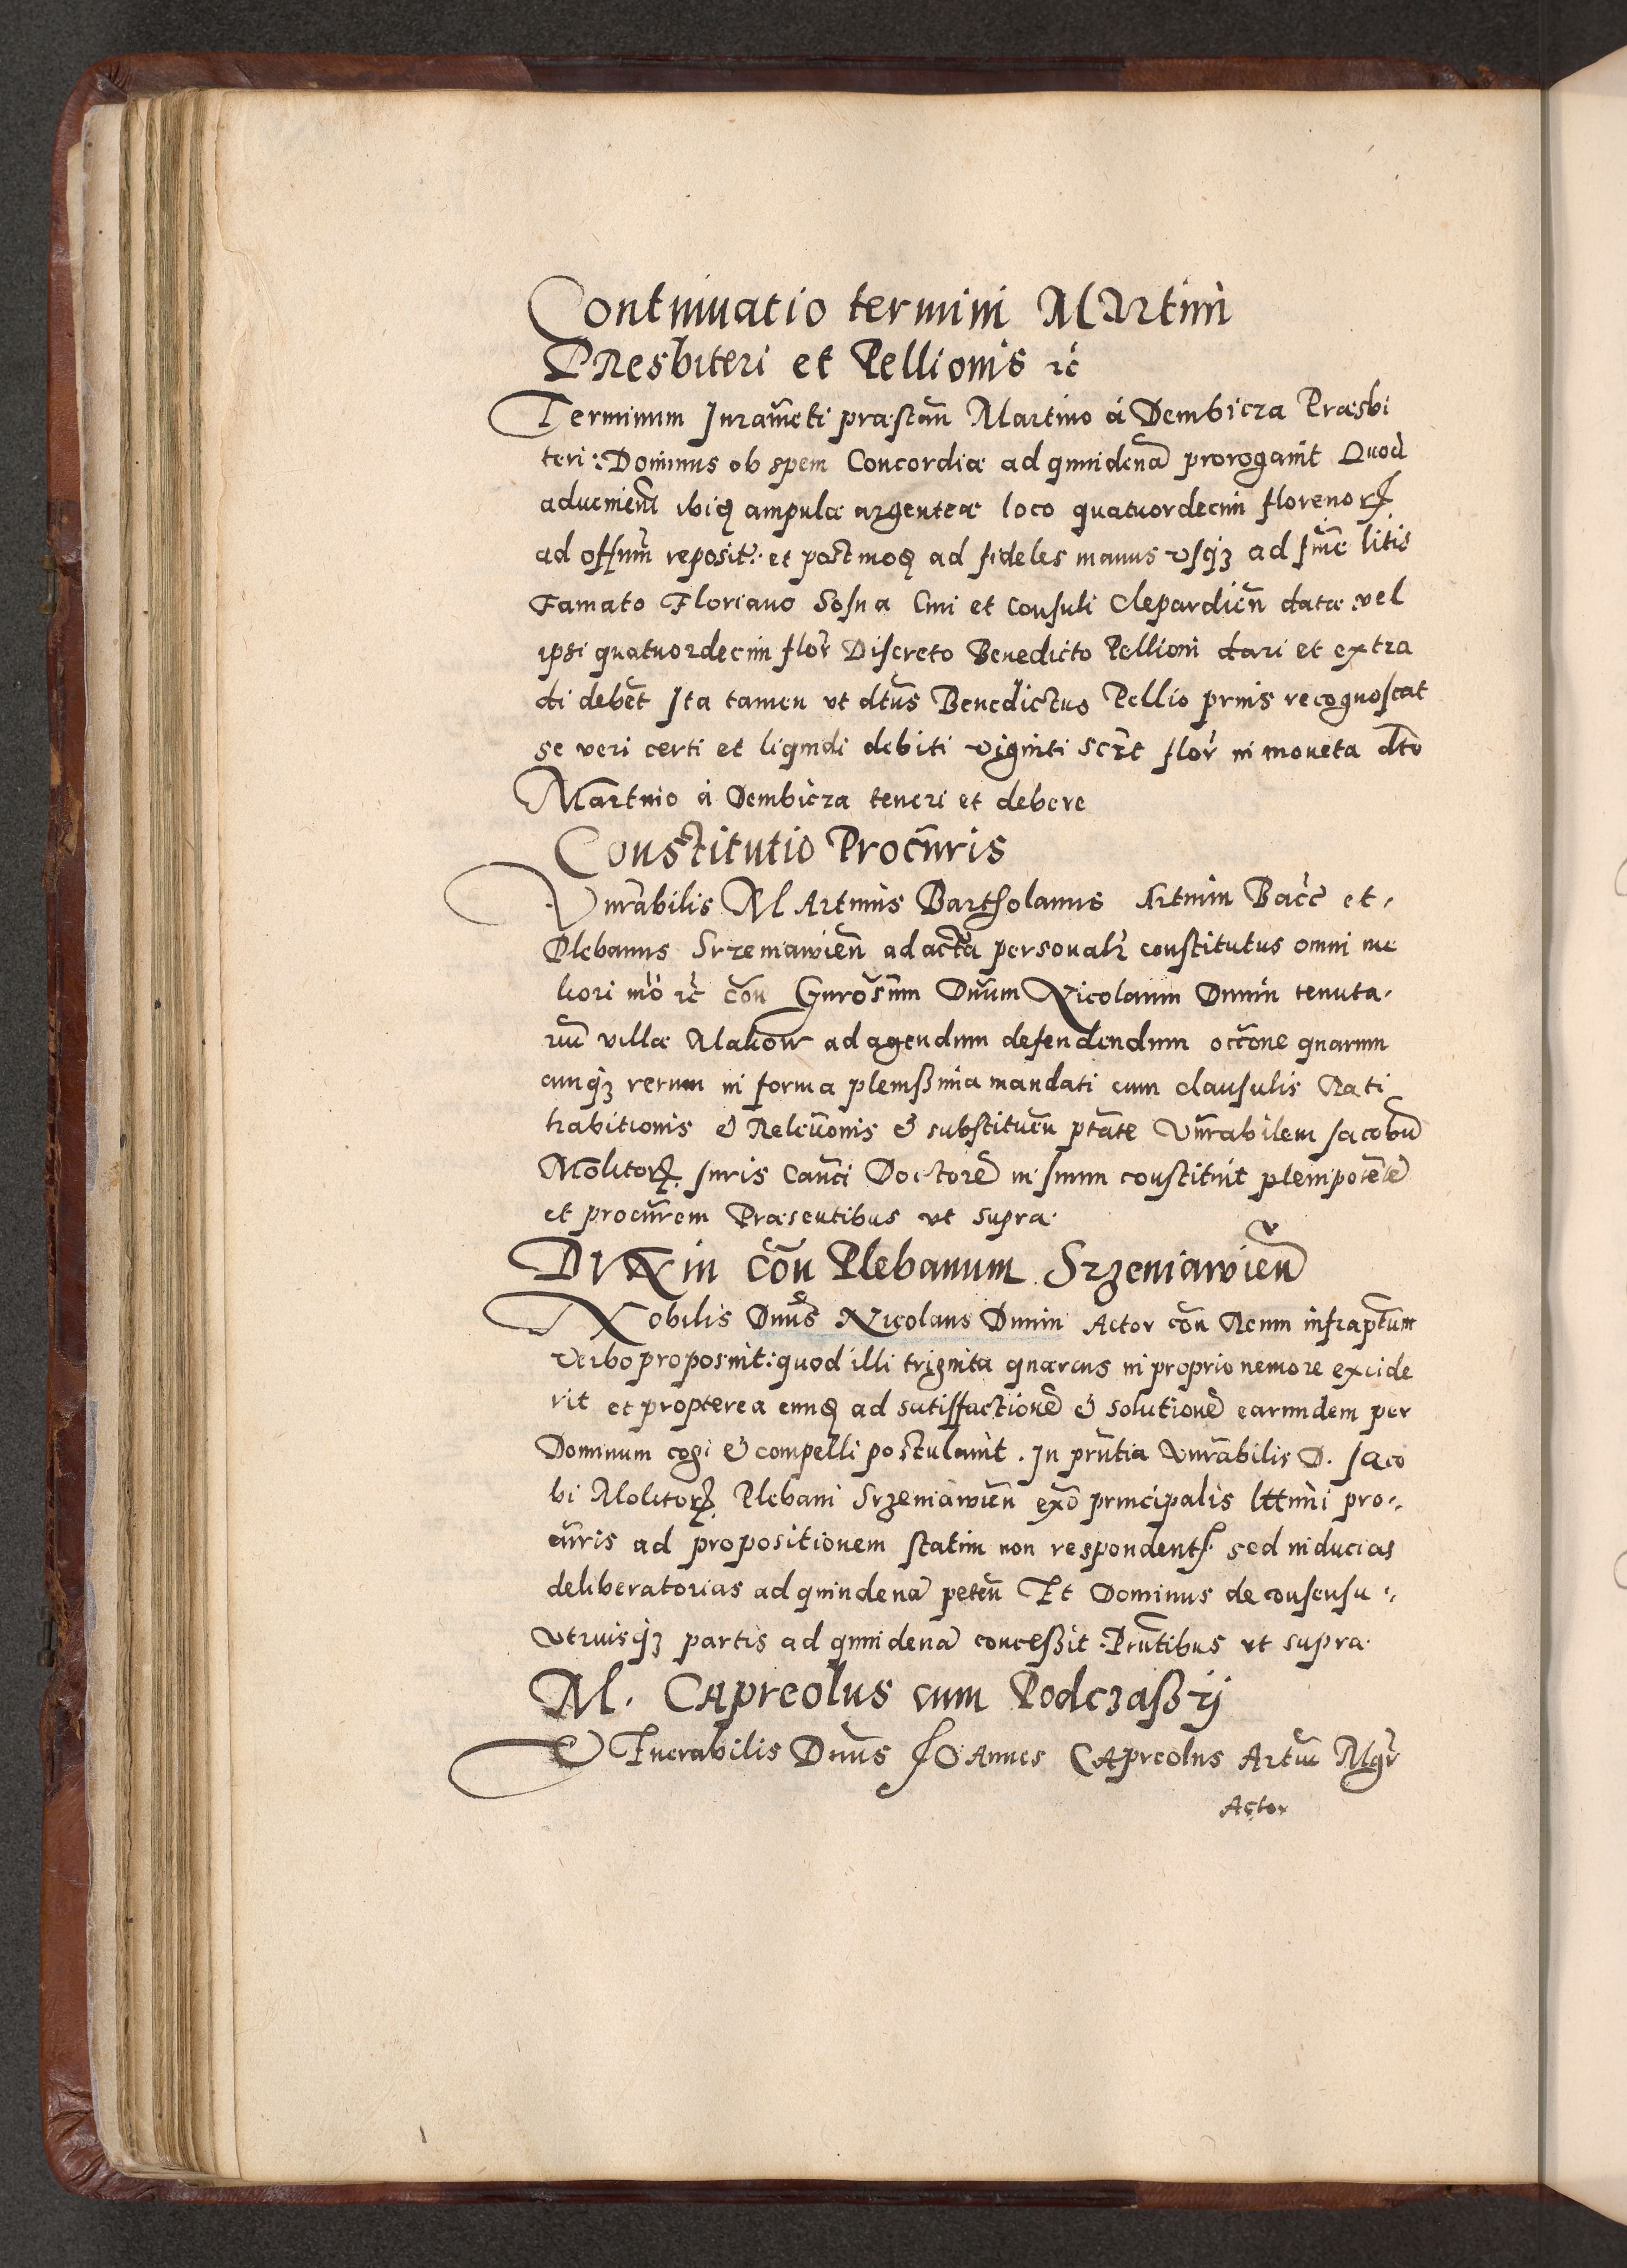 Continuatio termini Martini
Presbiteri et Pellionis ꝛc̄
Terminum Juramēti præstan̄ Martino á Dembicza Præsbi
teri: Dominus ob spem Concordiæ ad quindenā prorogauit Quod
aduenien̄ ibiq ampulæ argenteæ loco quatuordecim florenoꝝ
ad offium reposit: et postmoq ad fideles manus vsqꝫ ad finē litis
Famato Floriano Sosna Ciui et Consuli Clepardien̄ datæ vel
ipsi quatuordecim flor̄ Discreto Benedicto Pellioni dari et extra
di debēt Ita tamen vt dt̄us Benedictus Pellio prius recognoscat
se veri certi et liquidi debiti viginti flor̄ in moneta dt̄o
Martino á Dembicza teneri et debere
Constitutio Procūris
Vn̄rabilis Martinus Bartholanus Artium Bacc̄ et
Plebanus Srzeniawien̄ ad acta personalr̄ constitutus omni me
liori mō ꝛc̄ cōn Gn̄rosum Dn̄um Nicolaum Dunin tenuta-
riū villæ Malkow ad agendum defendendum occ̄one quarum
cunqꝫ rerum in forma plenißima mandati cum clausulis Rati
habitionis & Releuōnis & substituen̄ ptāte Vn̄rabilem Jacobū
Molitoꝝ Juris Can̄ci Doctorē in suum constituit plenipotētē
et procūrem Præsentibus vt supra
Dunin cōn Plebanum Srzeniawien̄
Nobilis Dn̄us Nicolaus Dunin Actor cōn Reum infrap̄tum
verbo proposuit: quod illi triginta quercus in proprio nemore excide
rit et propterea eunq ad satisfactionē & solutionē earundem per
Dominum cogi & compelli postulauit. In prn̄tia Vn̄rabilis D. Jaco
bi Molitoꝝ Plebani Srzeniawien̄ exō principalis ltt̄imi pro-
cūris ad propositionem statim non respondentꝭ sed inducias
deliberatorias ad quindenā peten̄ Et Dominus de consensu
vtriusqꝫ partis ad quindenā conceßit Prn̄tibus vt supra
M. Capreolus cum Podczaßÿ
Venerabilis Dn̄us Joannes Capreolus Artiū Mgr̄
Actor